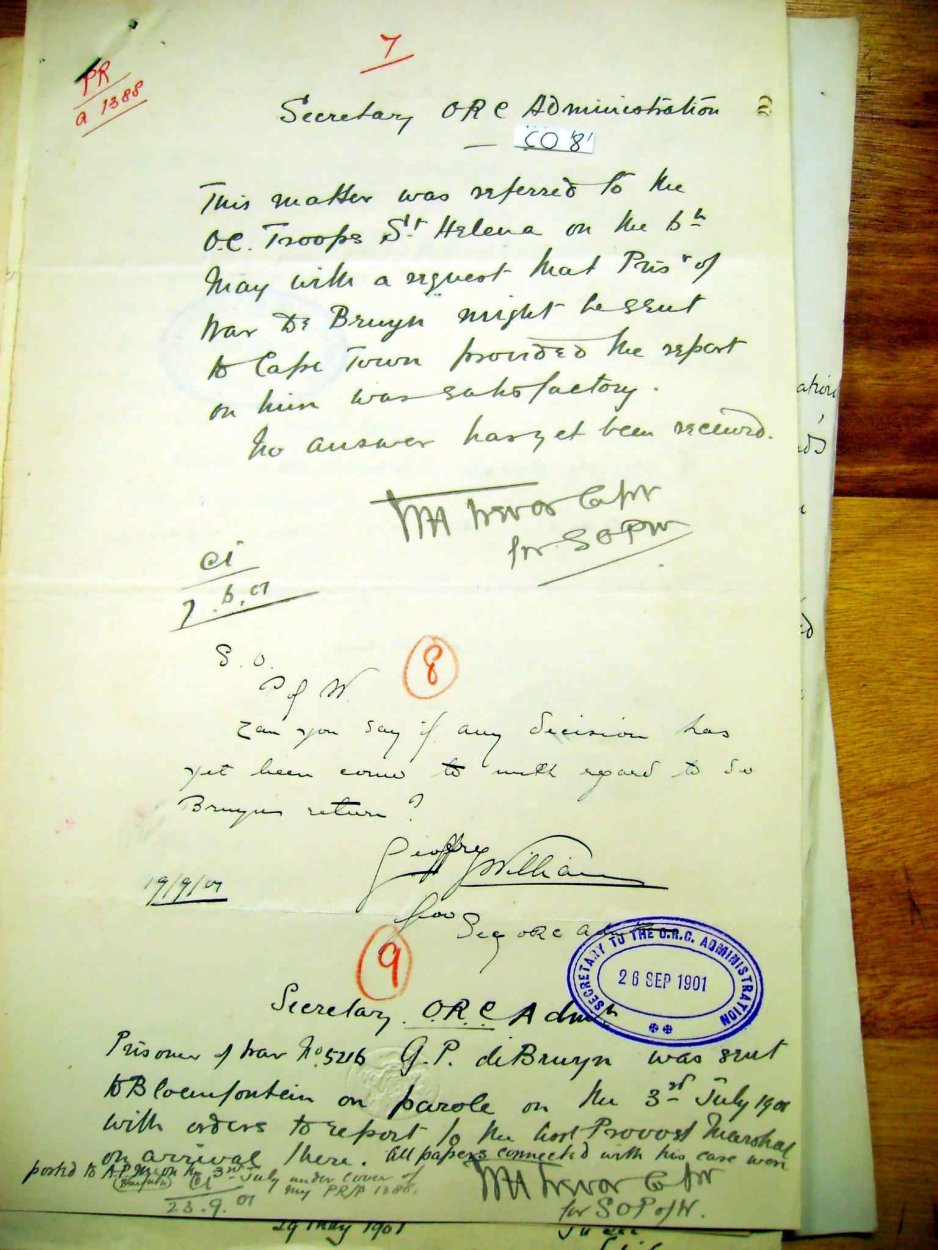 7
PR
a 1388
Secretary ORC Administration
CO '8'
This matter was referred to the
O.C. Troops St Helena on the 6th
May with a request that Prisr of
War De Bruyn might be sent
to Cape Town provided the report
on him was satisfactory.
No answer has yet been received.
Trevor Capt
for SOPW
CT
7.6.01
S.O.
P of W.
8
Can you say if any decision has
yet been come to with regard to De
Bruyns return?
Geoffrey Williams
19/9/01
for Secy ORC Admn
9
SECRETARY TO THE O.R.C. ADMINISTRATION
26 SEP 1901
Secretary O.R.C Admn
Prisoner of War No 5216 G.P. de Bruyn was sent
to Bloemfontein on parole on the 3rd July 1901
with orders to report to the Provost Marshal
on arrival there. All papers connected with his case were
posted to A.P.M. on the 3rd July under cover of
my PR/P 1388.
CT
23.9.01
Trevor Capt
for SOP of W.
29 May 1901